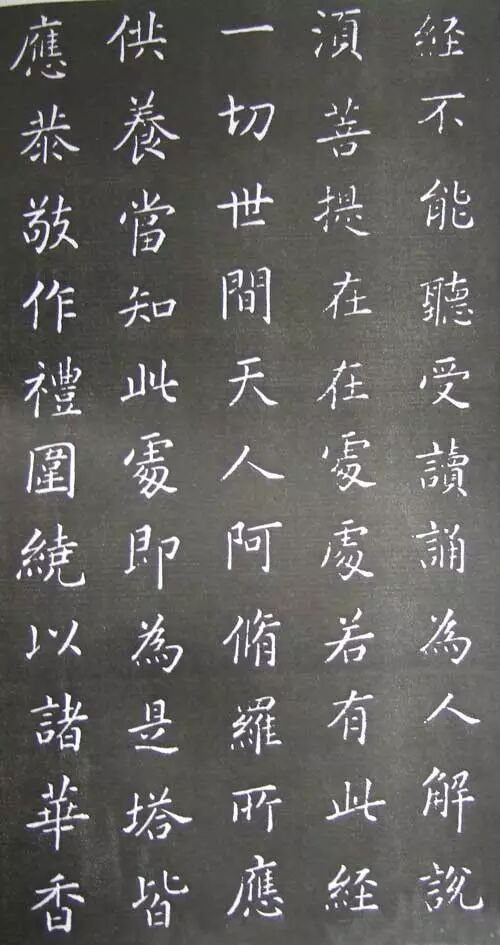 經不能聽受讀誦為人解說
湏菩提在在處處若有此經
一切世間天人阿脩羅所應
供養當知此處即為是塔皆
應恭敬作禮圍繞以諸華香